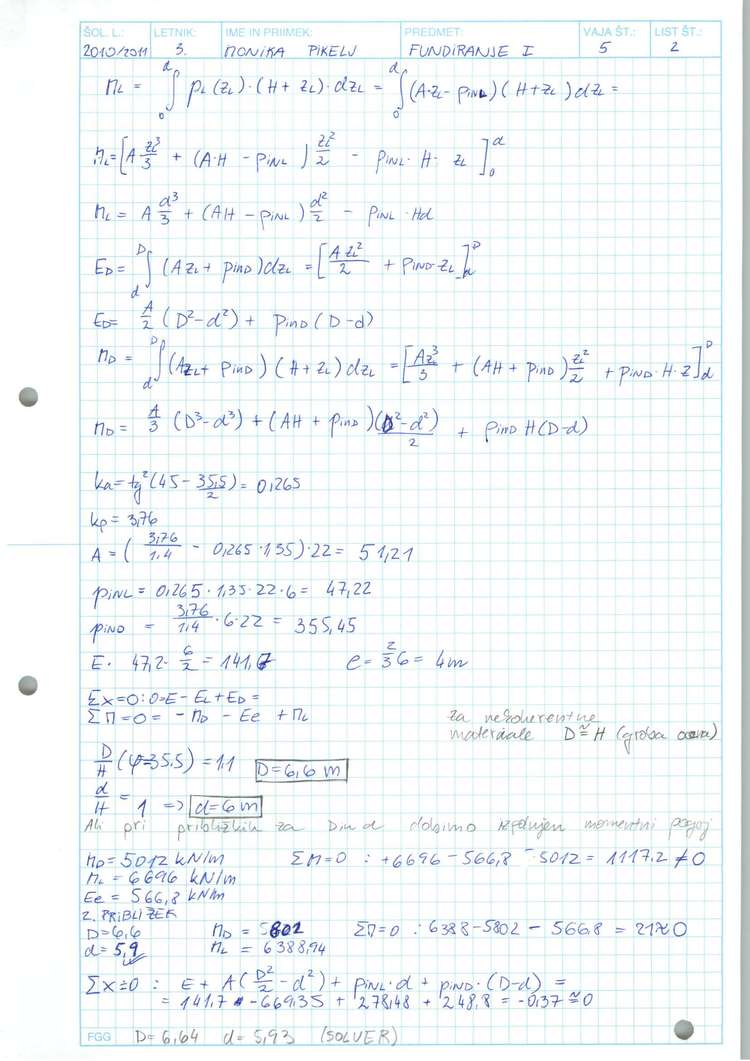 ŠOL. L.: LETNIK: IME IN PRIIMEK: PREDMET: VAJA ŠT.: LIST ŠT.:
2010/2011 3. MONIKA PIKELJ FUNDIRANJE I 5 2
M_L = ∫₀^d p_L(z_L)·(H+z_L)·dz_L = ∫₀^d (A·z_L − p_INL)(H+z_L)dz_L =
M_L = [A z_L³/3 + (A·H − p_INL) z_L²/2 − p_INL·H·z_L]₀^d
M_L = A d³/3 + (AH − p_INL) d²/2 − p_INL·Hd
E_D = ∫_d^D (Az_L + p_IND)dz_L = [A z_L²/2 + p_IND·z_L]_d^D
E_D = A/2 (D²−d²) + p_IND(D−d)
M_D = ∫_d^D (Az_L + p_IND)(H+z_L)dz_L = [Az_L³/3 + (AH + p_IND) z_L²/2 + p_IND·H·z]_d^D
M_D = A/3 (D³−d³) + (AH + p_IND)(D²−d²)/2 + p_IND H(D−d)
ka = tg²(45 − 35,5/2) = 0,265
kp = 3,76
A = (3,76/1.4 − 0,265·1,35)·22 = 51,21
p_INL = 0,265·1,35·22·6 = 47,22
p_IND = 3,76/1,4 · 6·22 = 355,45
E· 47,2· 6/2 = 141,7 e = 2/3 6 = 4m
Σx=0: 0=E−E_L+E_D =
ΣM=0 = −M_D − Ee + M_L
za nekoherentne
materiale D ≅ H (groba ocena)
D/H (φ=35.5) = 1,1 D=6,6 m
d/H = 1 => d=6m
Ali pri približkih za D in d dobimo izpolnjen momentni pogoj
M_D = 5012 kN/m ΣM=0 : +6696 − 566,8 − 5012 = 1117.2 ≠ 0
M_L = 6696 kN/m
Ee = 566,8 kN/m
2. PRIBLIŽEK
D=6,6 M_D = 5802 ΣM=0 : 6388−5802 − 566.8 = 21≈0
d=5,9 M_L = 6388,94
Σx=0 : E + A(D²/2 − d²) + p_INL·d + p_IND·(D−d) =
= 141,7 − 669,35 + 278,48 + 248,8 = −0,37 ≅ 0
FGG D=6,64 d=5,93 (SOLVER)